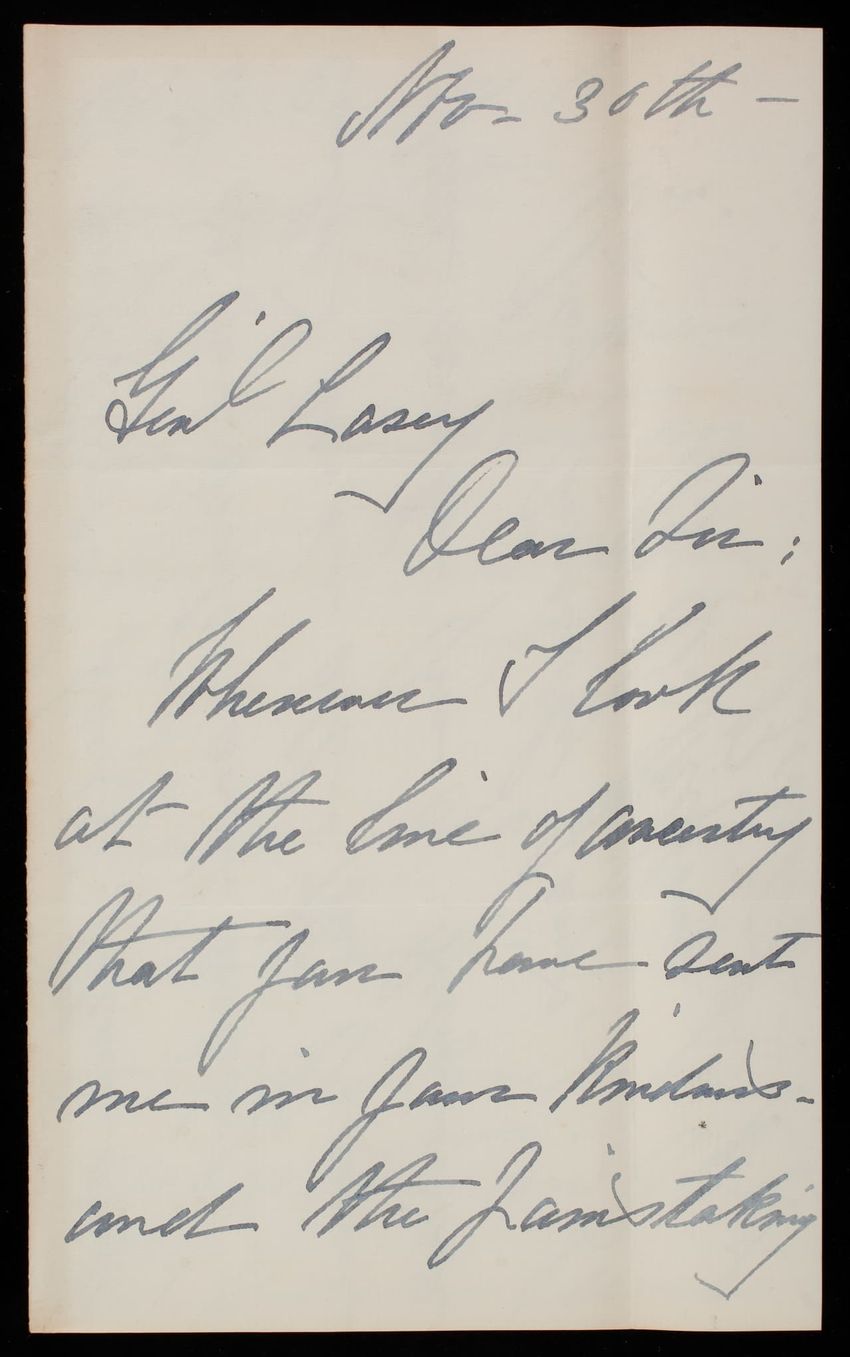 Nov- 30th -
Gen'l Casey
Dear Sir:
Whenever I look
at the line of ancestry
that you have sent
me in your kindness-
and the painstaking